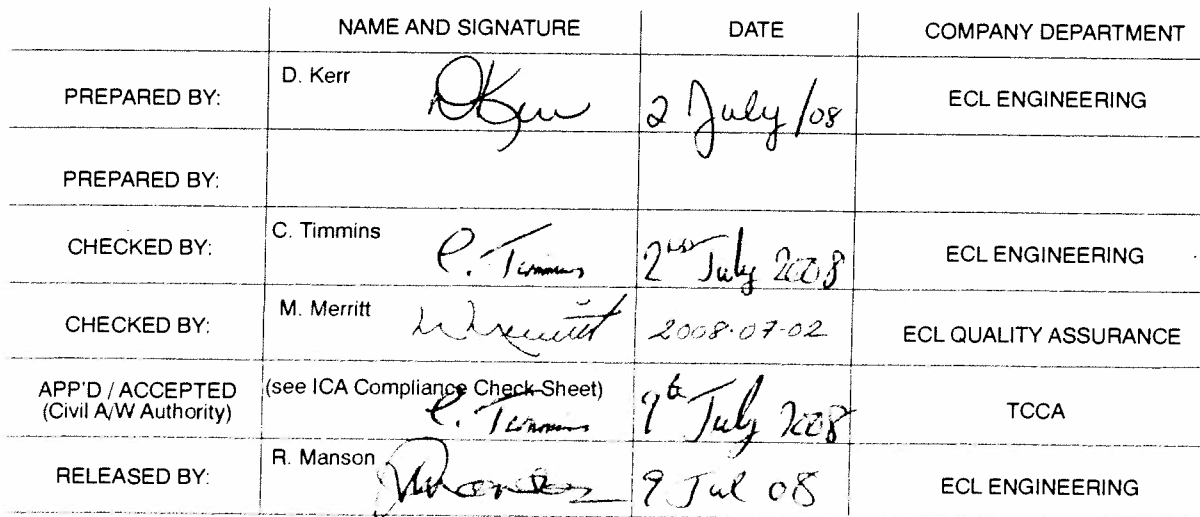 NAME AND SIGNATURE DATE COMPANY DEPARTMENT
PREPARED BY: D. Kerr DKerr 2 July /08 ECL ENGINEERING
PREPARED BY:
CHECKED BY: C. Timmins C. Timmins 2nd July 2008 ECL ENGINEERING
CHECKED BY: M. Merritt MMerritt 2008-07-02 ECL QUALITY ASSURANCE
APP'D / ACCEPTED (see ICA Compliance Check Sheet)
(Civil A/W Authority) C. Timmins 9th July 2008 TCCA
RELEASED BY: R. Manson RManson 9 Jul 08 ECL ENGINEERING